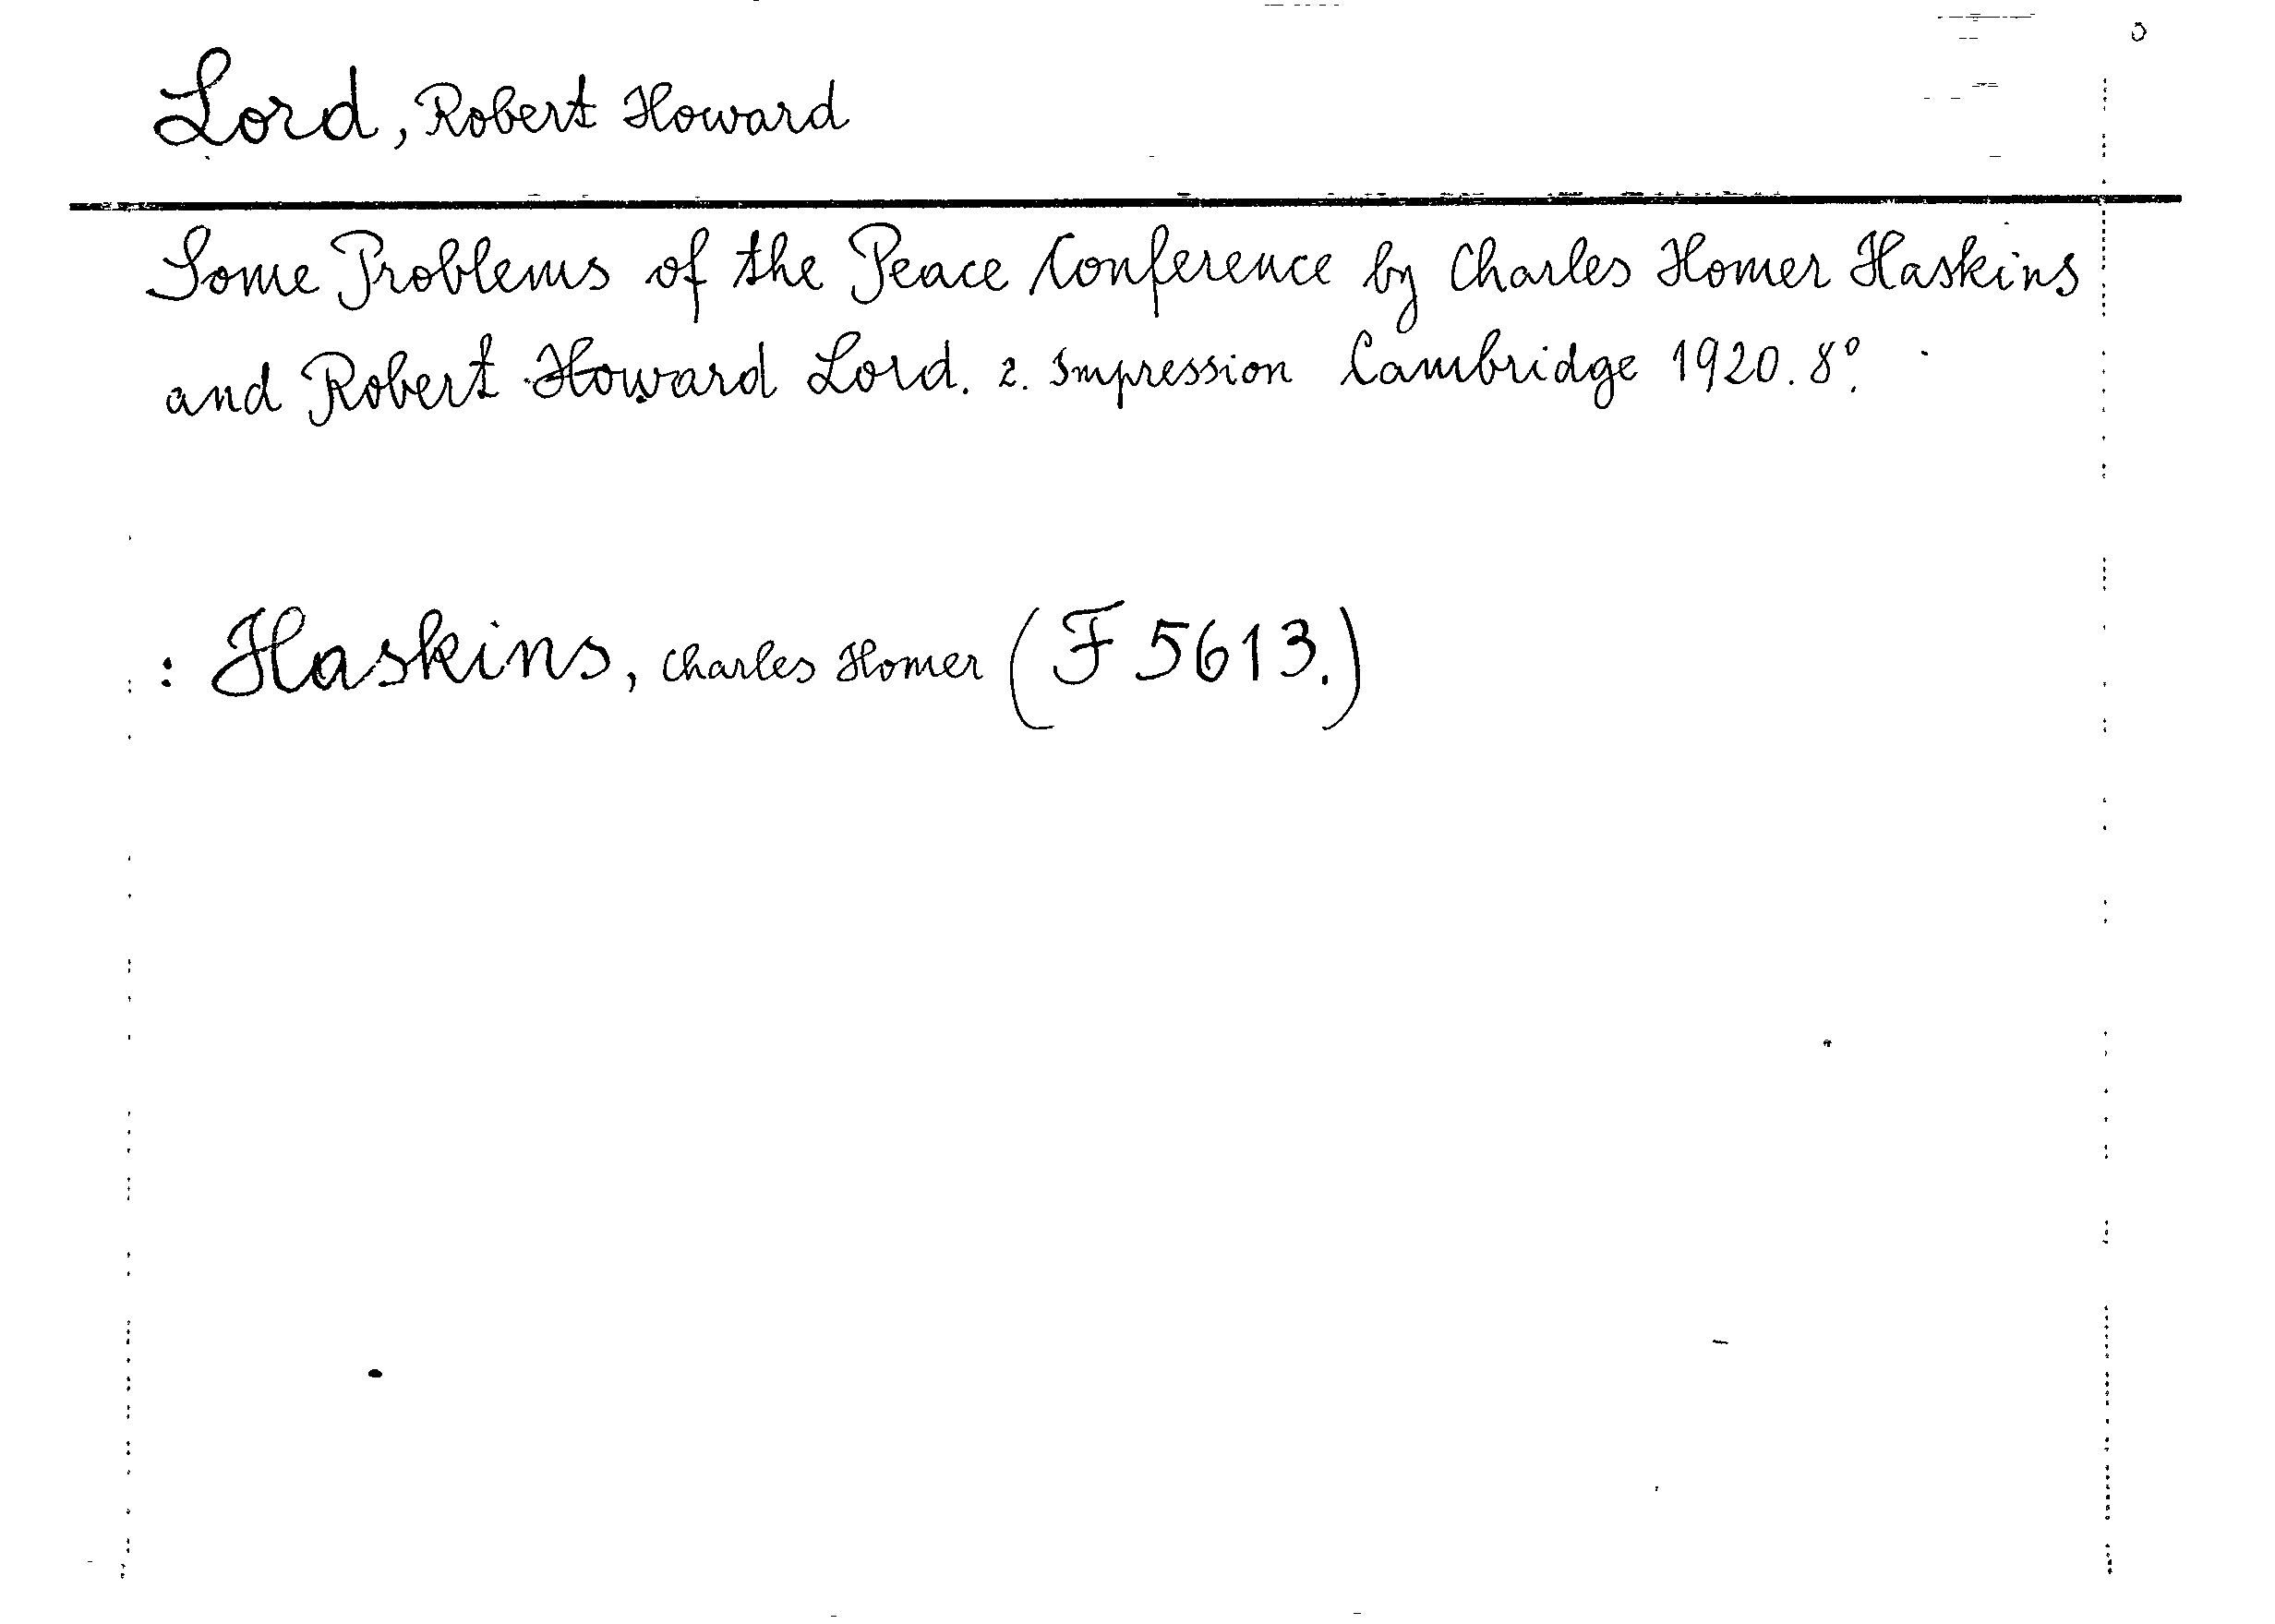 Lord, Robert Howard
Some Problems of the Peace Conference by Charles Homer Haskins
and Robert Howard Lord. 2. Impression Cambridge 1920. 8°.
: Haskins, Charles Homer (F 5613.)